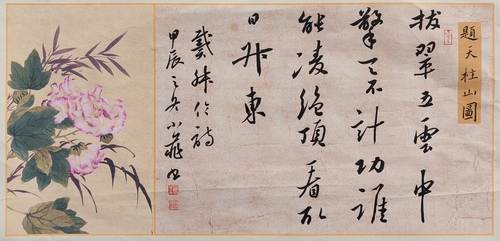 題天柱山圖
拔翠五雲中
擎天不計功誰
能凌絕頂看取
日升東
戴叔倫詩
甲辰之冬小